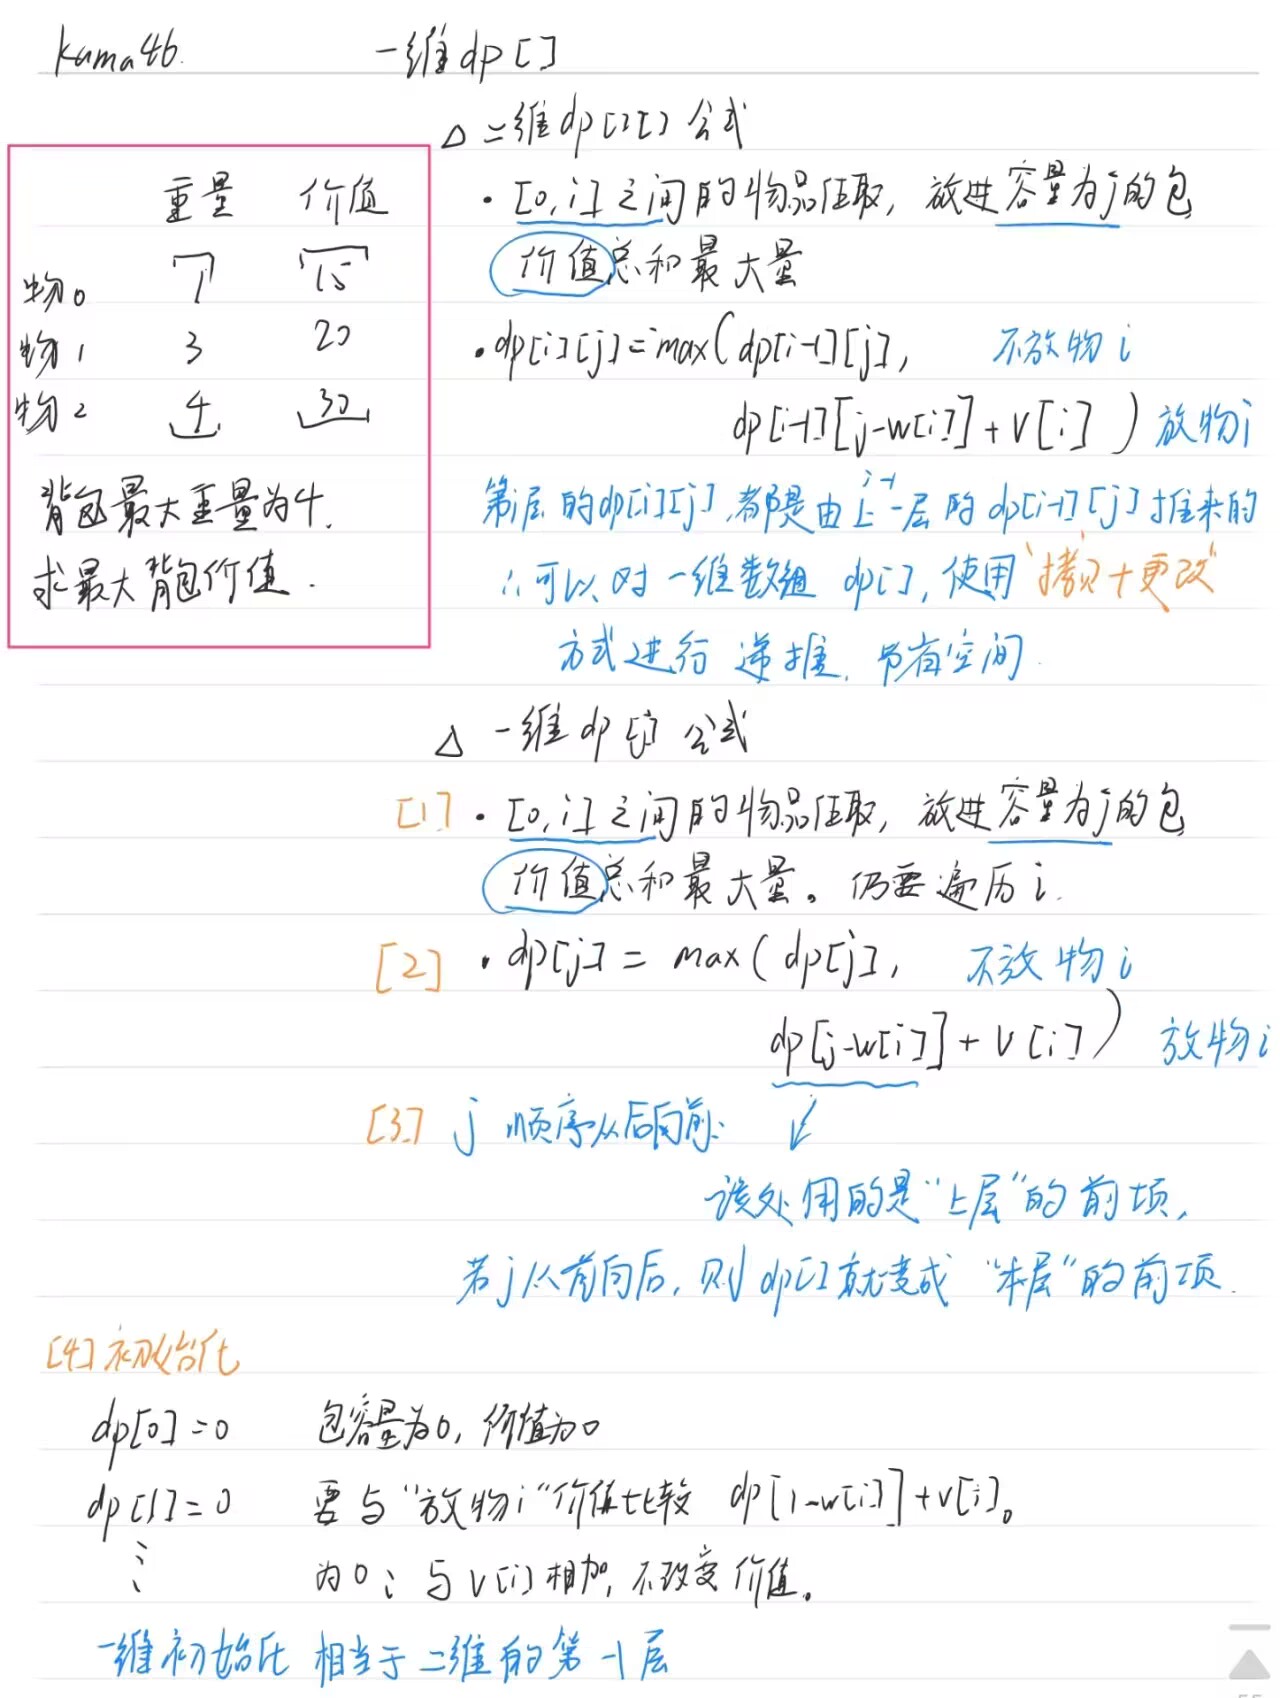 kama46. 一维dp[]
△ 二维dp[][]公式
重量 价值
物0 1 15
物1 3 20
物2 4 30
背包最大重量为4.
求最大背包价值.
· [0,i]之间的物品任取, 放进容量为j的包
价值总和最大量
· dp[i][j]=max(dp[i-1][j], 不放物i
dp[i-1][j-w[i]]+v[i]) 放物i
i-1
第i层的dp[i][j],都是由上一层的dp[i-1][j]推来的
∴可以对一维数组 dp[], 使用"拷贝+更改"
方式进行递推, 节省空间.
△ 一维dp[j]公式
[1] · [0,i]之间的物品任取, 放进容量为j的包
价值总和最大量。仍要遍历i.
[2] · dp[j] = max(dp[j], 不放物i
dp[j-w[i]]+v[i]) 放物i
[3] j 顺序从后向前:
该处用的是"上层"的前项,
若j从前向后, 则dp[]就变成"本层"的前项.
[4] 初始化
dp[0]=0 包容量为0, 价值为0
dp[1]=0 要与"放物i"价值比较 dp[1-w[i]]+v[i]。
⋮ 为0: 与v[i]相加, 不改变价值。
一维初始化 相当于二维的第-1层